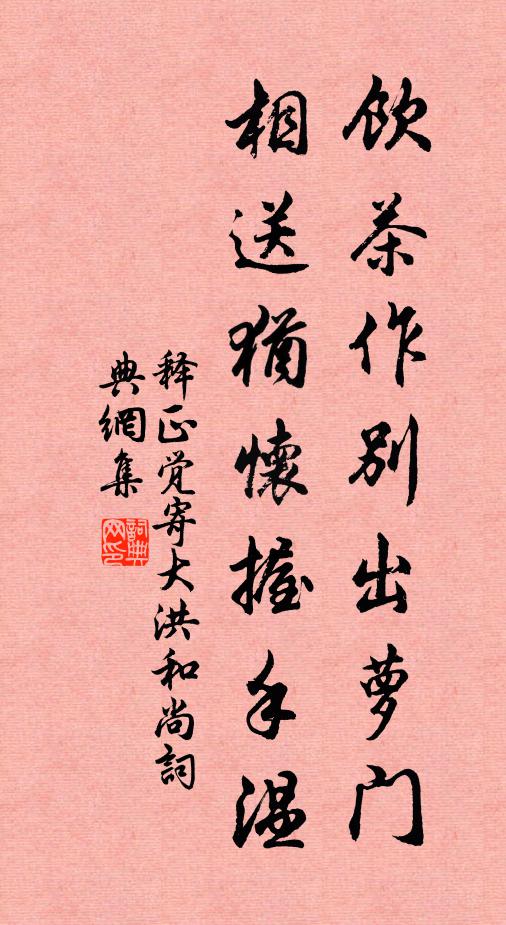 饮茶作别出萝门
相送犹怀握手温
释正觉寄大洪和尚词
典网集
词典网印